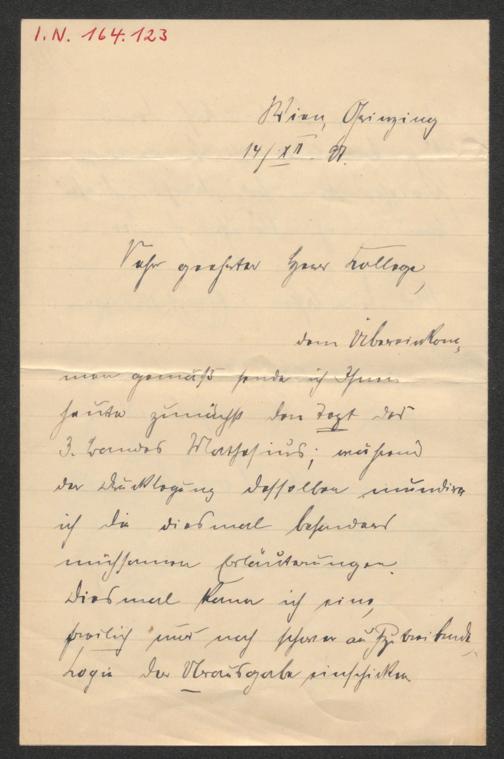 I.N. 164.123
Wien, Grinzing
14/XII. 97.
Sehr geehrter Herr College,
dem Übereinkom-
men gemäß sende ich Ihnen
heute zunächst den Text des
3. Bandes Mathesius; während
der Drucklegung desselben mundire
ich die diesmal besonders
mühsamen Erläuterungen.
Diesmal kann ich eine,
freilich nur noch schwer aufzutreibende
Copie der Urausgabe einschicken